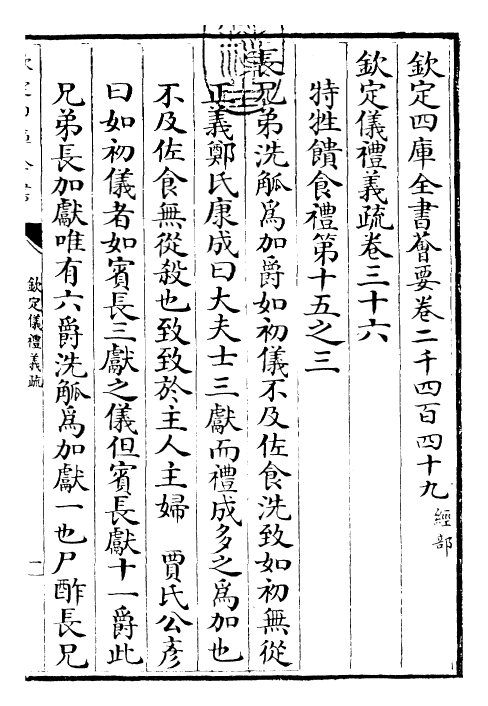 欽定四庫全書薈要卷二千四百四十九 經部
欽定儀禮義疏卷三十六
特牲饋食禮第十五之三
長兄弟洗觚為加爵如初儀不及佐食洗致如初無從
正義鄭氏康成曰大夫士三獻而禮成多之為加也
不及佐食無從殺也致致於主人主婦 賈氏公彥
曰如初儀者如賓長三獻之儀但賓長獻十一爵此
兄弟長加獻唯有六爵洗觚為加獻一也尸酢長兄
欽定儀禮義疏
一